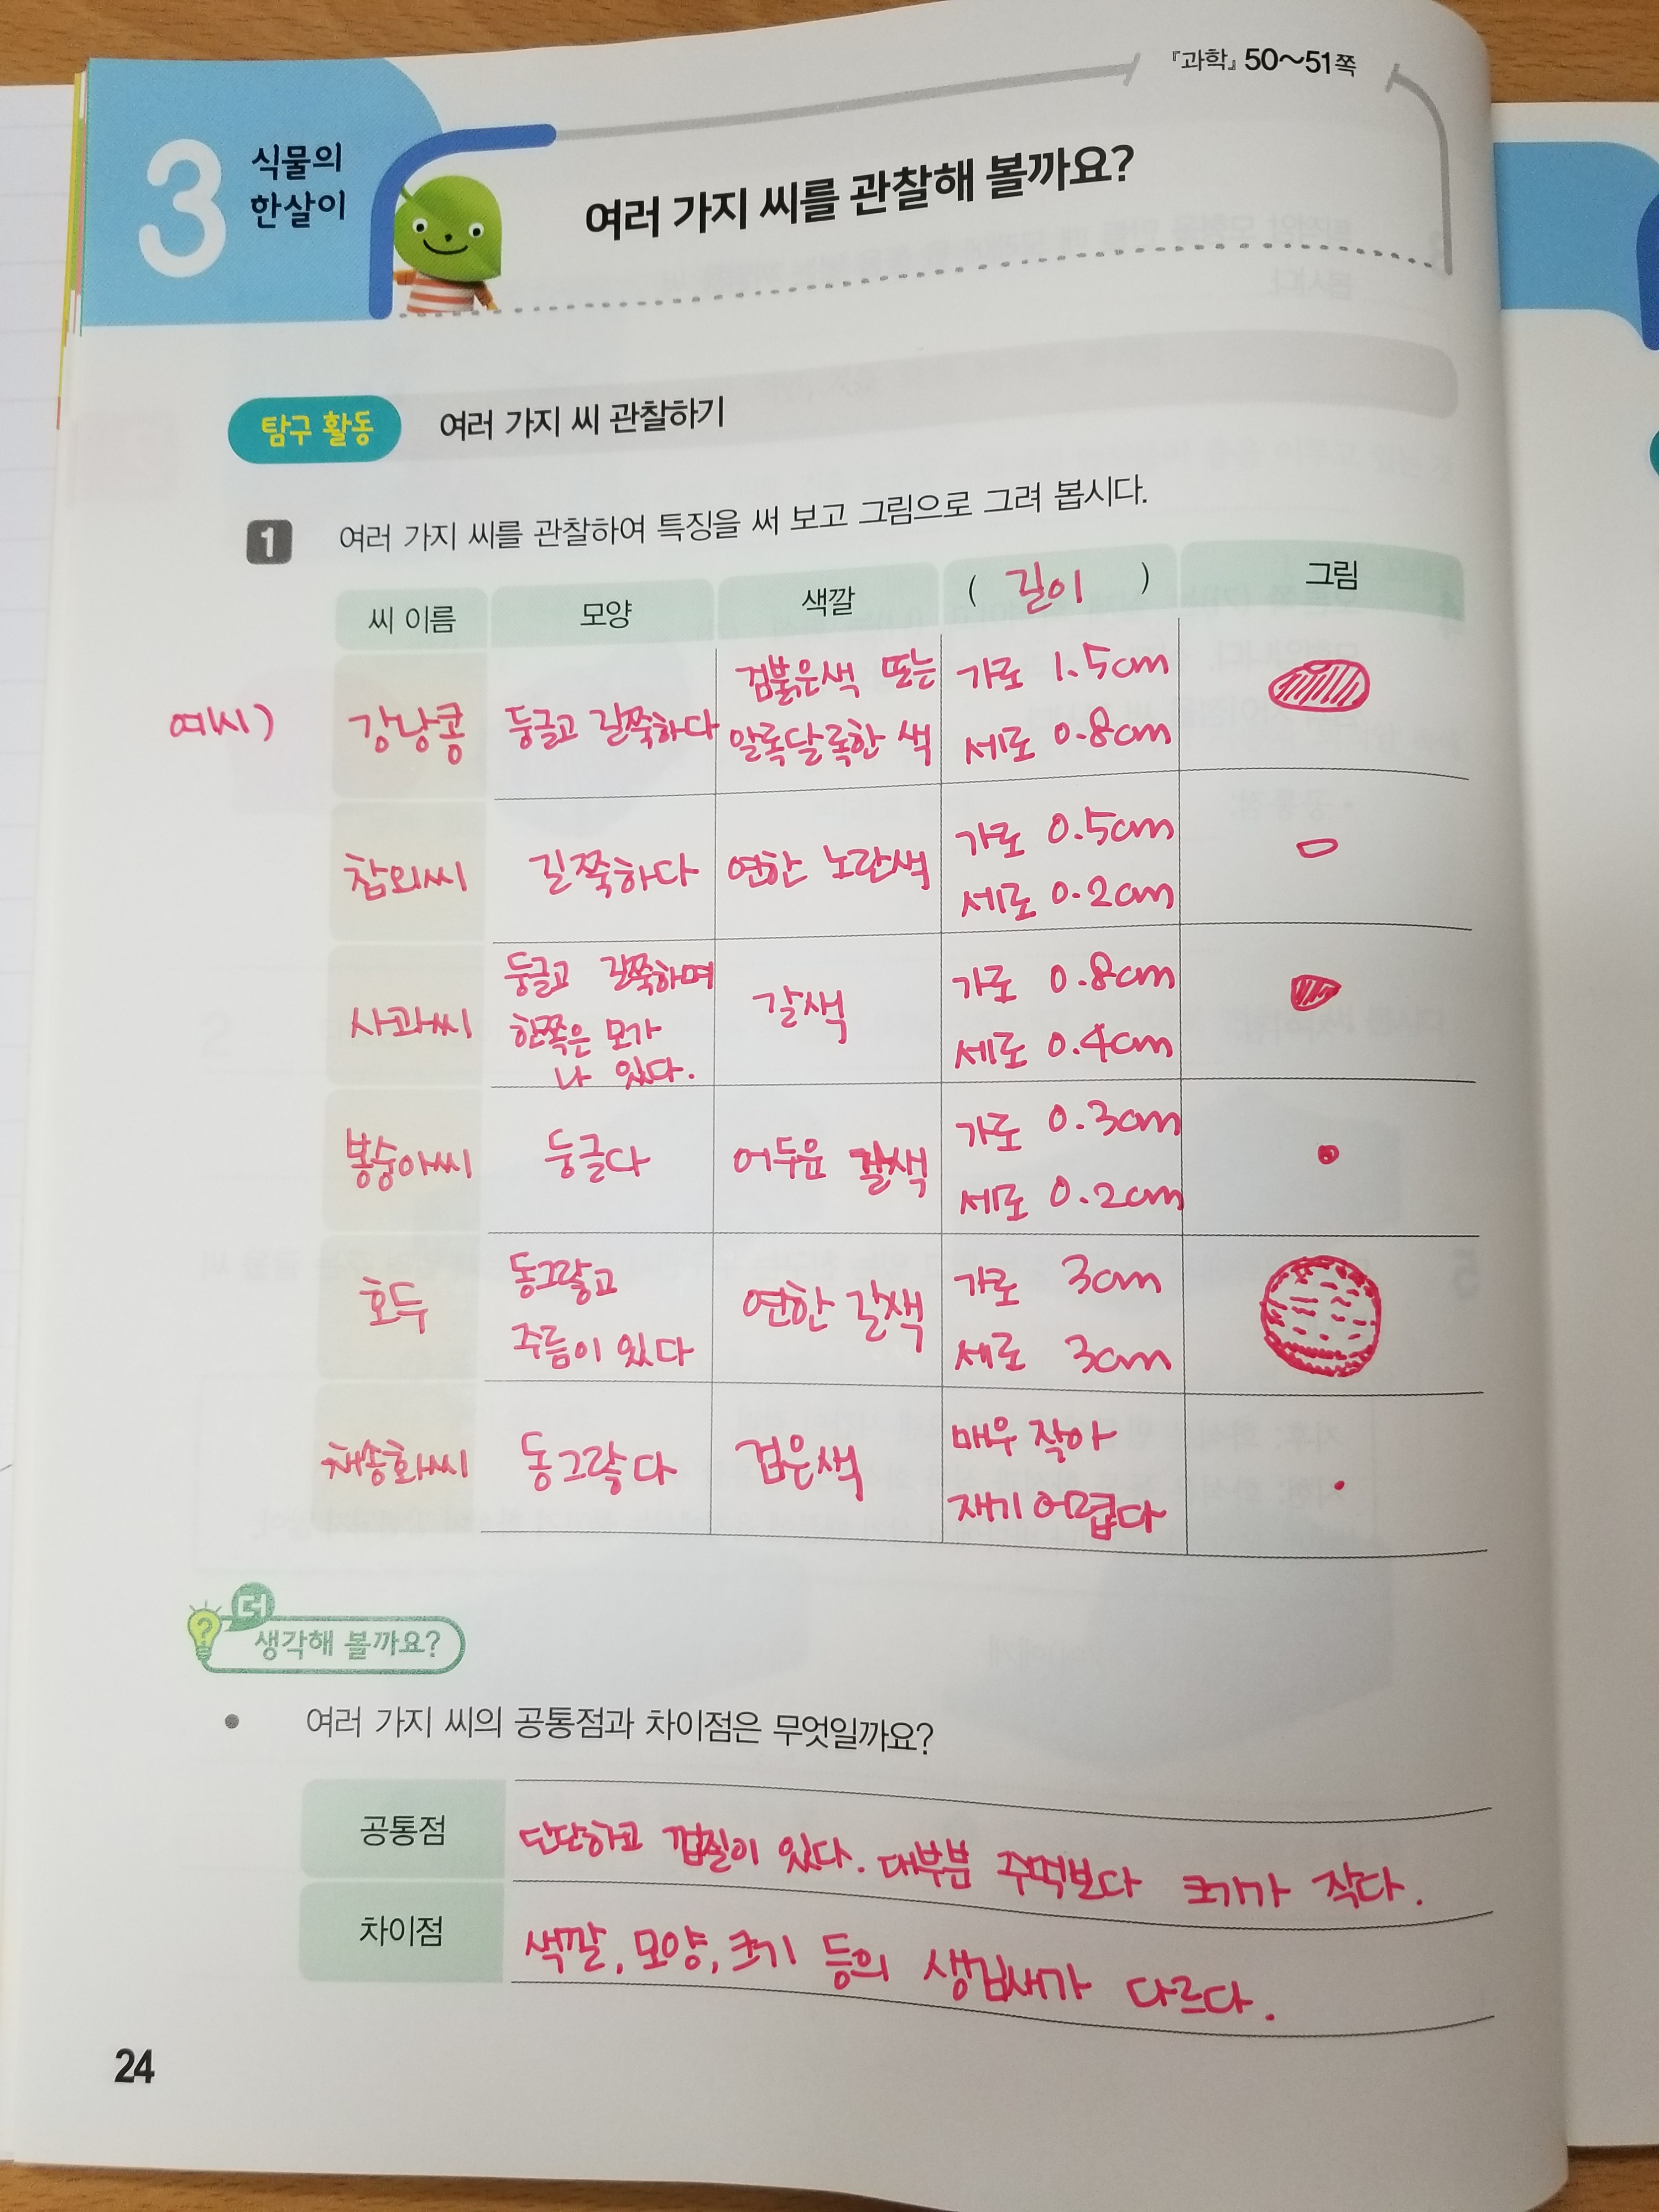 『과학』 50~51쪽
3 식물의
한살이
여러 가지 씨를 관찰해 볼까요?
탐구 활동 여러 가지 씨 관찰하기
1 여러 가지 씨를 관찰하여 특징을 써 보고 그림으로 그려 봅시다.
씨 이름 모양 색깔 ( 길이 ) 그림
예시)
강낭콩
둥글고 길쭉하다
검붉은색 또는
알록달록한 색
가로 1.5cm
세로 0.8cm
참외씨
길쭉하다
연한 노란색
가로 0.5cm
세로 0.2cm
사과씨
둥글고 길쭉하며
한쪽은 모가
나 있다.
갈색
가로 0.8cm
세로 0.4cm
봉숭아씨
둥글다
어두운 갈색
가로 0.3cm
세로 0.2cm
호두
동그랗고
주름이 있다
연한 갈색
가로 3cm
세로 3cm
채송화씨
동그랗다
검은색
매우 작아
재기 어렵다
더
생각해 볼까요?
• 여러 가지 씨의 공통점과 차이점은 무엇일까요?
공통점 단단하고 껍질이 있다. 대부분 주먹보다 크기가 작다.
차이점 색깔, 모양, 크기 등의 생김새가 다르다.
24